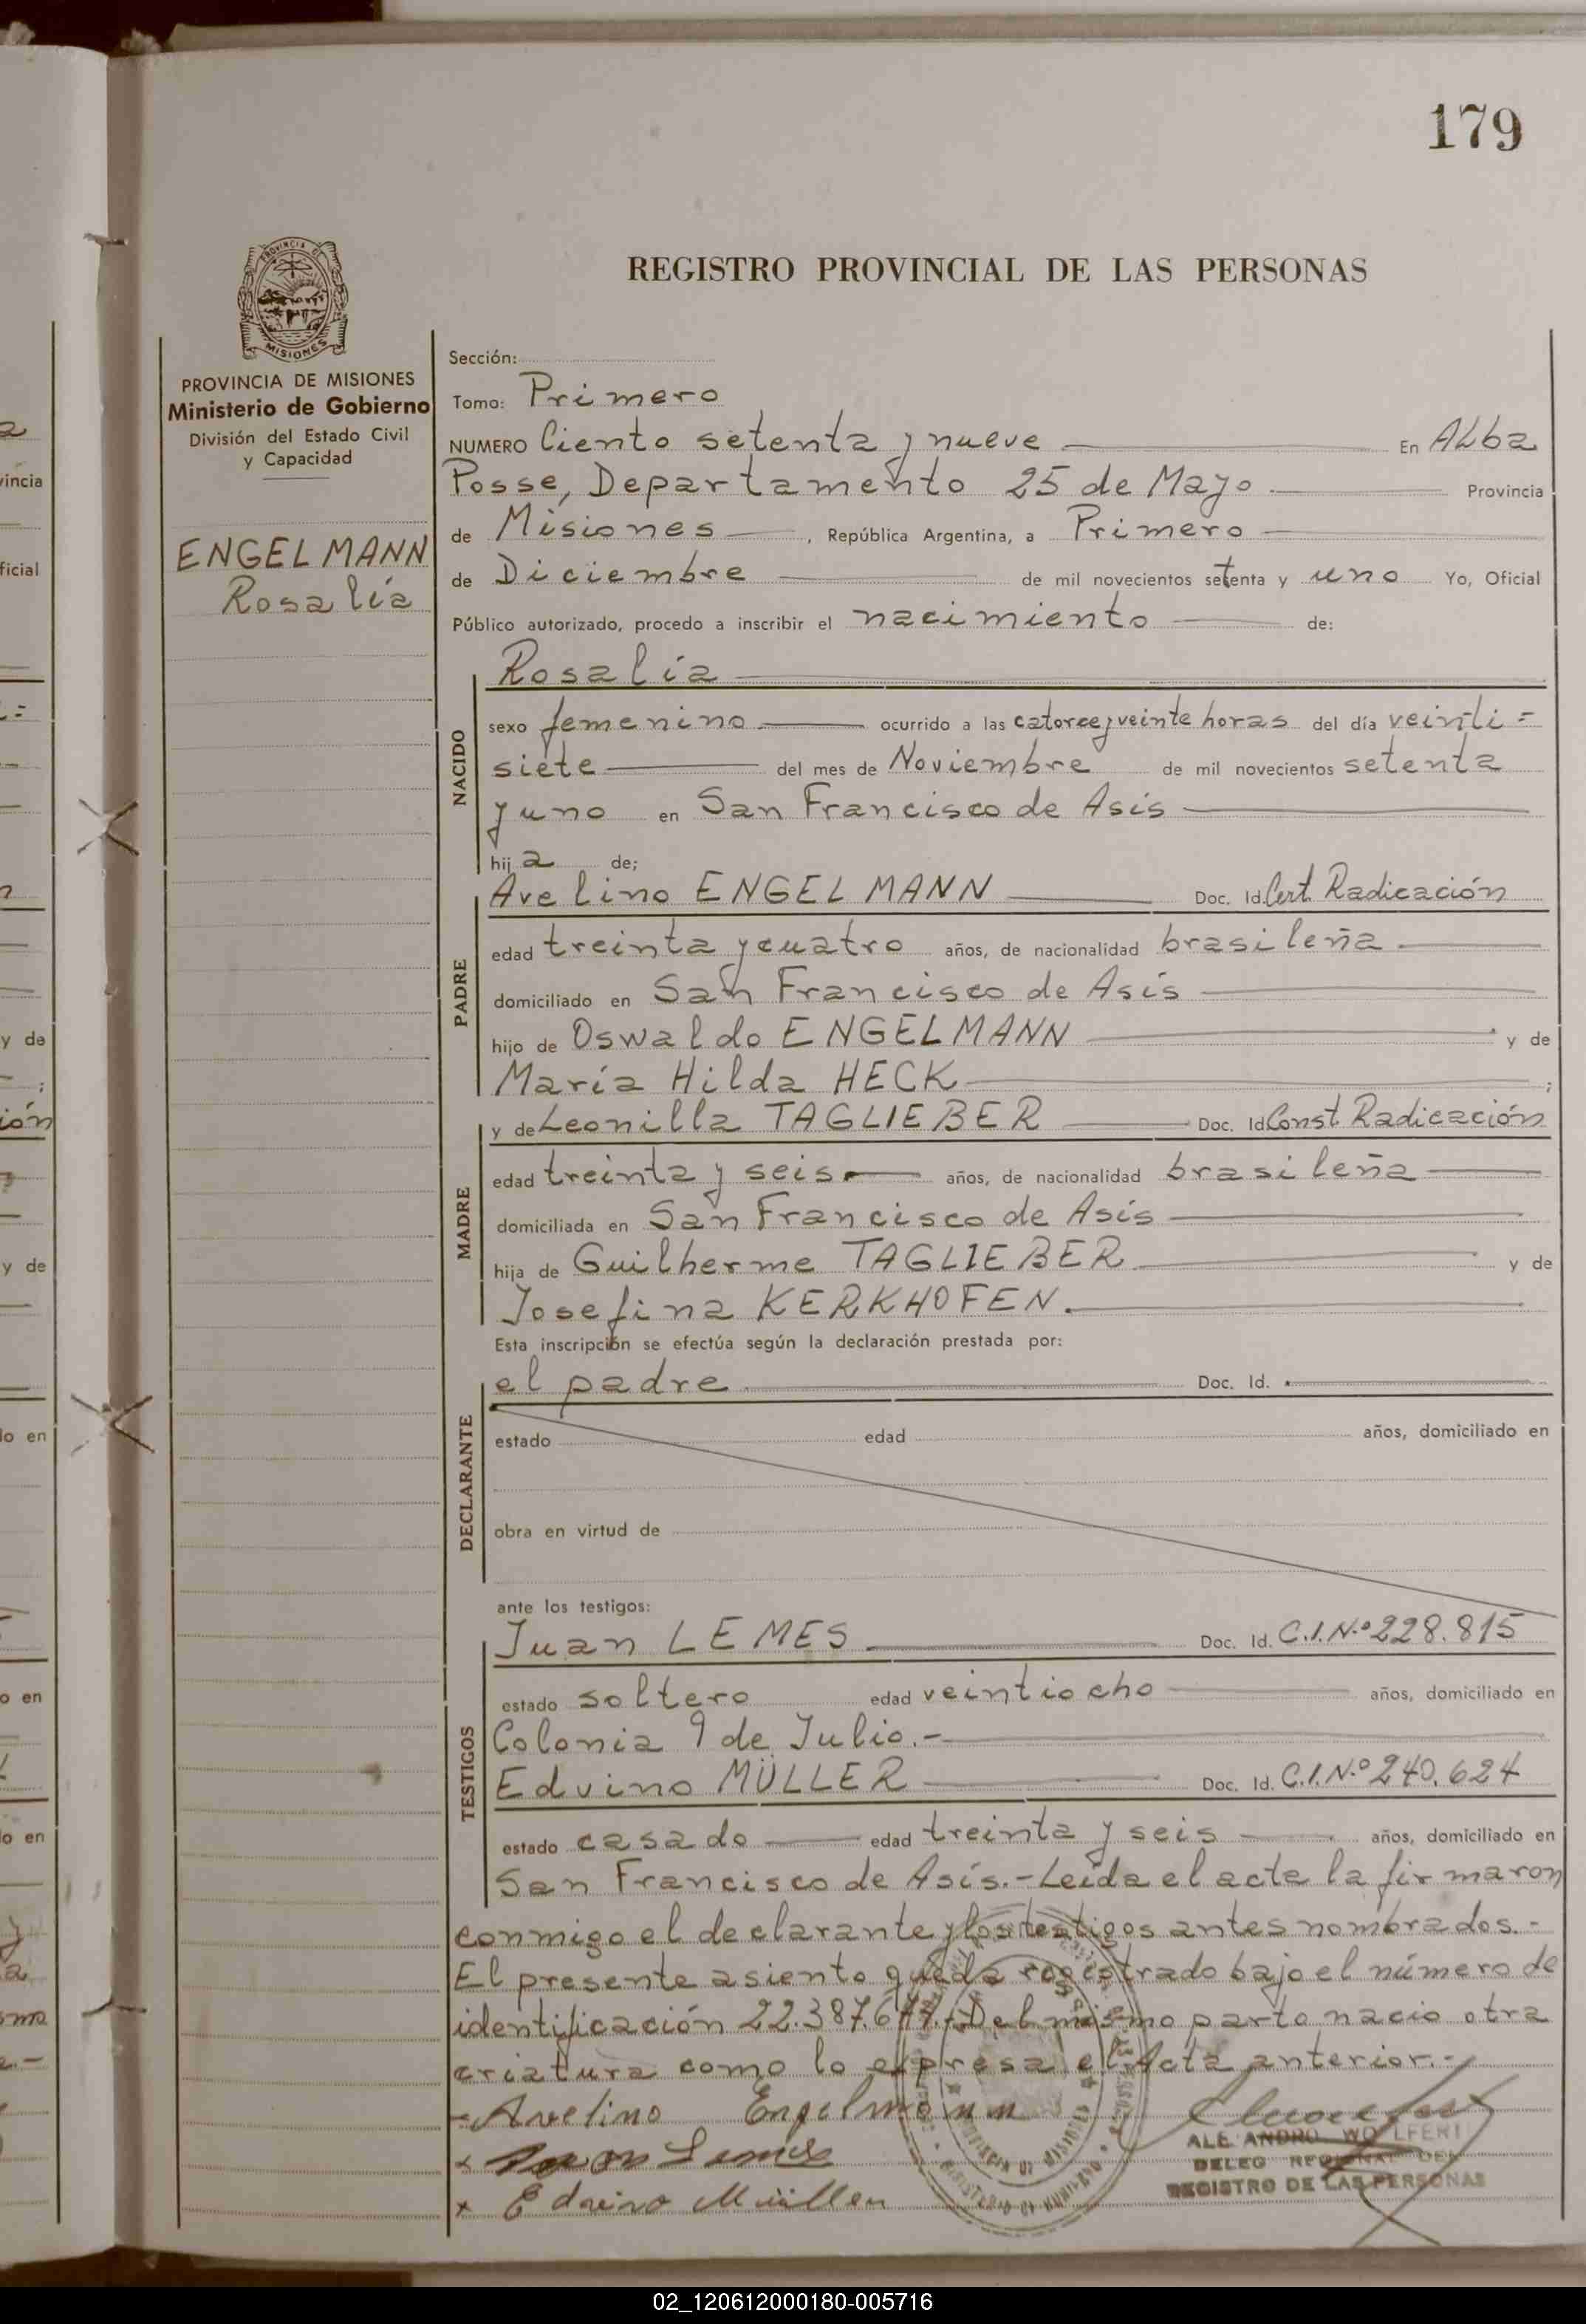 179
PROVINCIA DE
MISIONES
PROVINCIA DE MISIONES
Ministerio de Gobierno
División del Estado Civil
y Capacidad
ENGELMANN
Rosalía
REGISTRO PROVINCIAL DE LAS PERSONAS
Sección:
Tomo: Primero
NUMERO Ciento setenta y nueve En Alba
Posse, Departamento 25 de Mayo Provincia
de Misiones, República Argentina, a Primero
de Diciembre de mil novecientos setenta y uno Yo, Oficial
Público autorizado, procedo a inscribir el nacimiento de:
Rosalía
NACIDO
sexo femenino ocurrido a las catorce y veinte horas del día veinti=
siete del mes de Noviembre de mil novecientos setenta
y uno en San Francisco de Asís
hija de;
PADRE
Avelino ENGELMANN Doc. Id. Cert. Radicación
edad treinta y cuatro años, de nacionalidad brasileña
domiciliado en San Francisco de Asís
hijo de Oswaldo ENGELMANN y de
María Hilda HECK;
MADRE
y de Leonilla TAGLIEBER Doc. Id. Const Radicación
edad treinta y seis años, de nacionalidad brasileña
domiciliada en San Francisco de Asís
hija de Guilherme TAGLIEBER y de
Josefina KERKHOFEN.
Esta inscripción se efectúa según la declaración prestada por:
DECLARANTE
el padre Doc. Id.
estado edad años, domiciliado en
obra en virtud de
ante los testigos:
TESTIGOS
Juan LEMES Doc. Id. C.I.N.º 228.815
estado soltero edad veintiocho años, domiciliado en
Colonia 9 de Julio.-
Edvino MÜLLER Doc. Id. C.I.N.º 240.624
estado casado edad treinta y seis años, domiciliado en
San Francisco de Asís.-Leída el acta la firmaron
conmigo el declarante y los testigos antes nombrados.-
El presente asiento queda registrado bajo el número de
identificación Del mismo parto nacio otra
criatura como lo expresa el Acta anterior.-
-Avelino Engelmann
x Juan Lemes
x Edvino Müller
ALE ANDRO WOLFERT
DELEG REGIONAL DEL
REGISTRO DE LAS PERSONAS
02_120612000180-005716